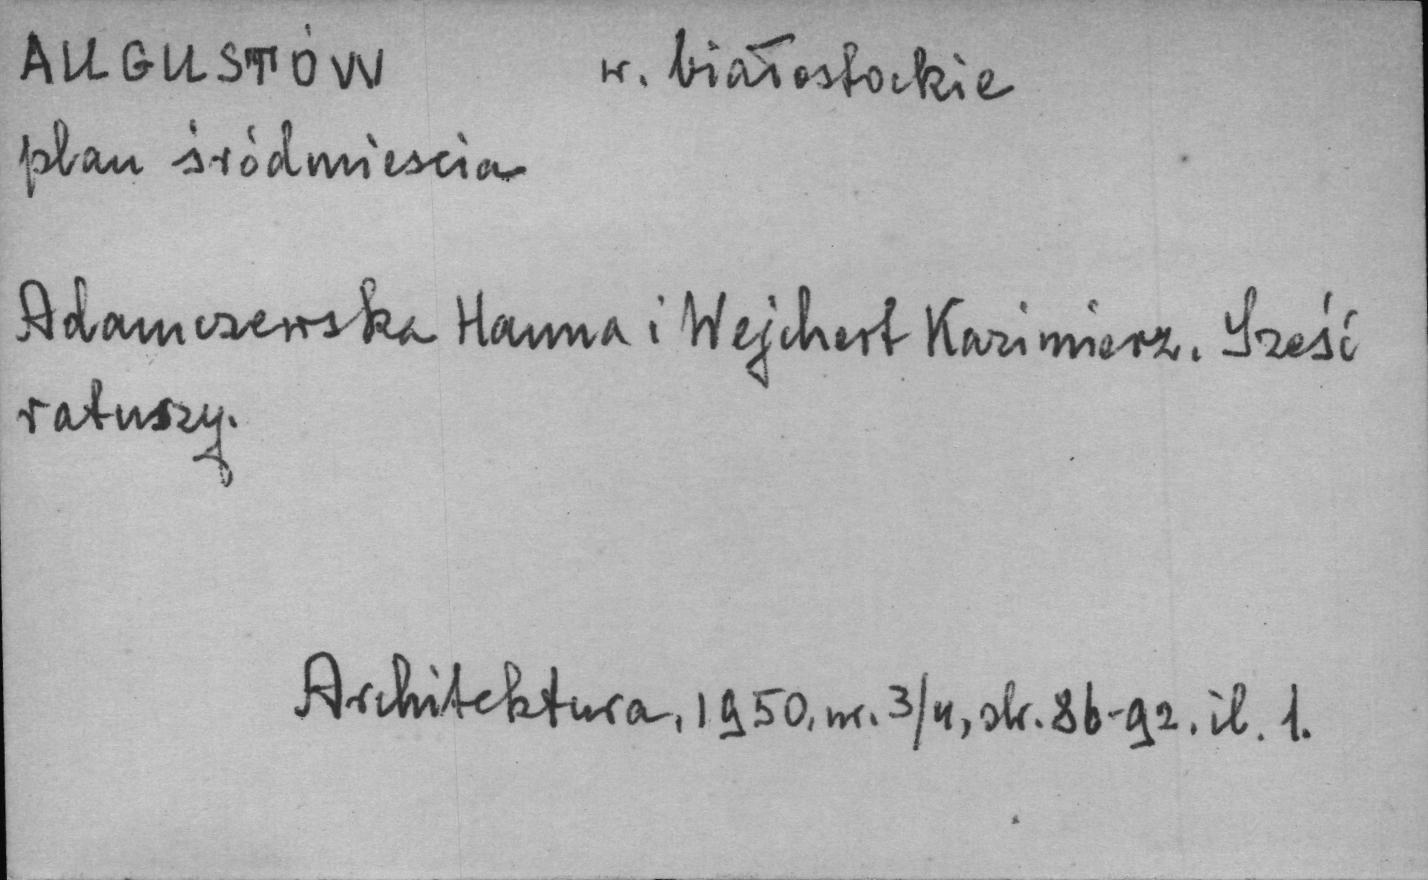 AUGUSTÓW w. białostockie
plan śródmieścia
Adamczewska Hanna i Wejchert Kazimierz. Sześć
ratuszy.
Architektura, 1950, nr. 3/4, str. 86-92. il. 1.